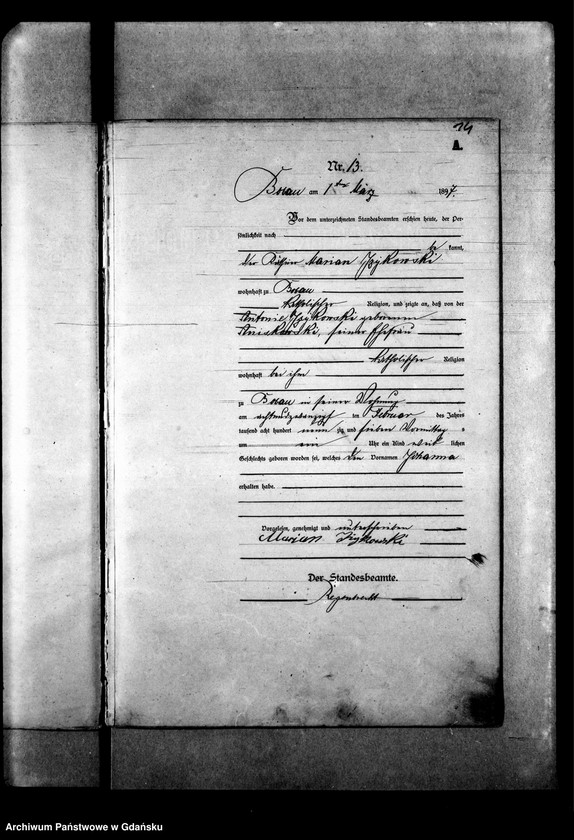 14
A.
Nr. 13.
Bosau am 1ten März 1897.
Vor dem unterzeichneten Standesbeamten erschien heute, der Per-
sönlichkeit nach
be kannt,
der Marian Izykowski
wohnhaft zu Bosau
katholischer Religion, und zeigte an, daß von der
Antonie Izykowski geborenen
seiner Ehefrau
katholischer Religion
wohnhaft bei ihm
zu Bosau in seiner Wohnung
am achtundzwanzigsten Februar des Jahres
tausend acht hundert neun zig und sieben Vormittag s
um ein Uhr ein Kind weib lichen
Geschlechts geboren worden sei, welches den Vornamen Johanna
erhalten habe.
Vorgelesen, genehmigt und unterschrieben
Marian Izykowski
Der Standesbeamte.
Archiwum Państwowe w Gdańsku